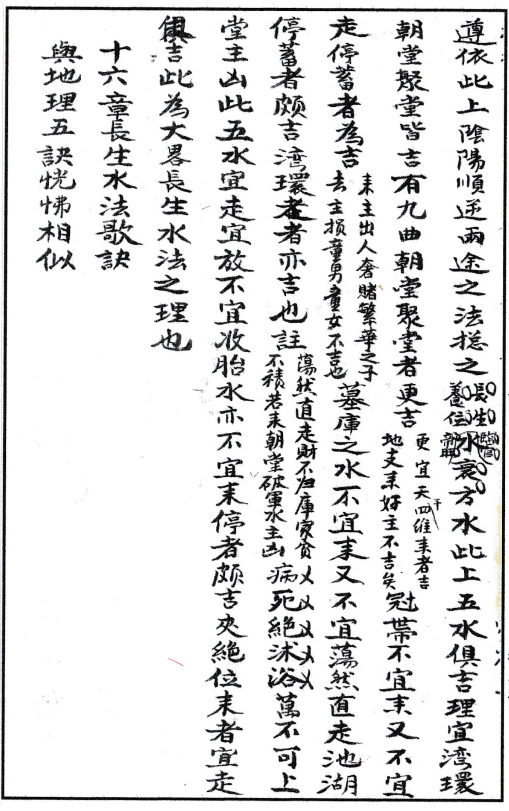 遵依此上陰陽順逆兩途之法捴之長生養位臨官帝旺水衰方水此上五水俱吉理宜湾環
朝堂聚堂皆吉有九曲朝堂聚堂者更吉更宜天干四維耒者吉地支耒好主不吉矣冠帶不宜耒又不宜
走停蓄者為吉耒主出人奢賭繁華之子去主损童男童女不吉也墓庫之水不宜耒又不宜蕩然直走池湖
停蓄者頗吉湾環者亦吉也註蕩然直走財不归庫家贫不積若耒朝堂破軍水主凶病死絕沭浴萬不可上
堂主凶此五水宜走宜放不宜收胎水亦不宜耒停者頗吉夾絕位耒者宜走
俱吉此為大畧長生水法之理也
十六章長生水法歌訣
與地理五訣恍怫相似